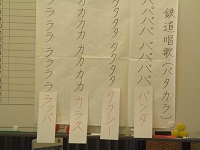 鉄道唱歌(パタカラ)
パパパパ パパパパ
パンダ
タタタタ タタタタ
タクシー
カカカカ カカカカ
カラス
ララララ ララララ
ラッパ